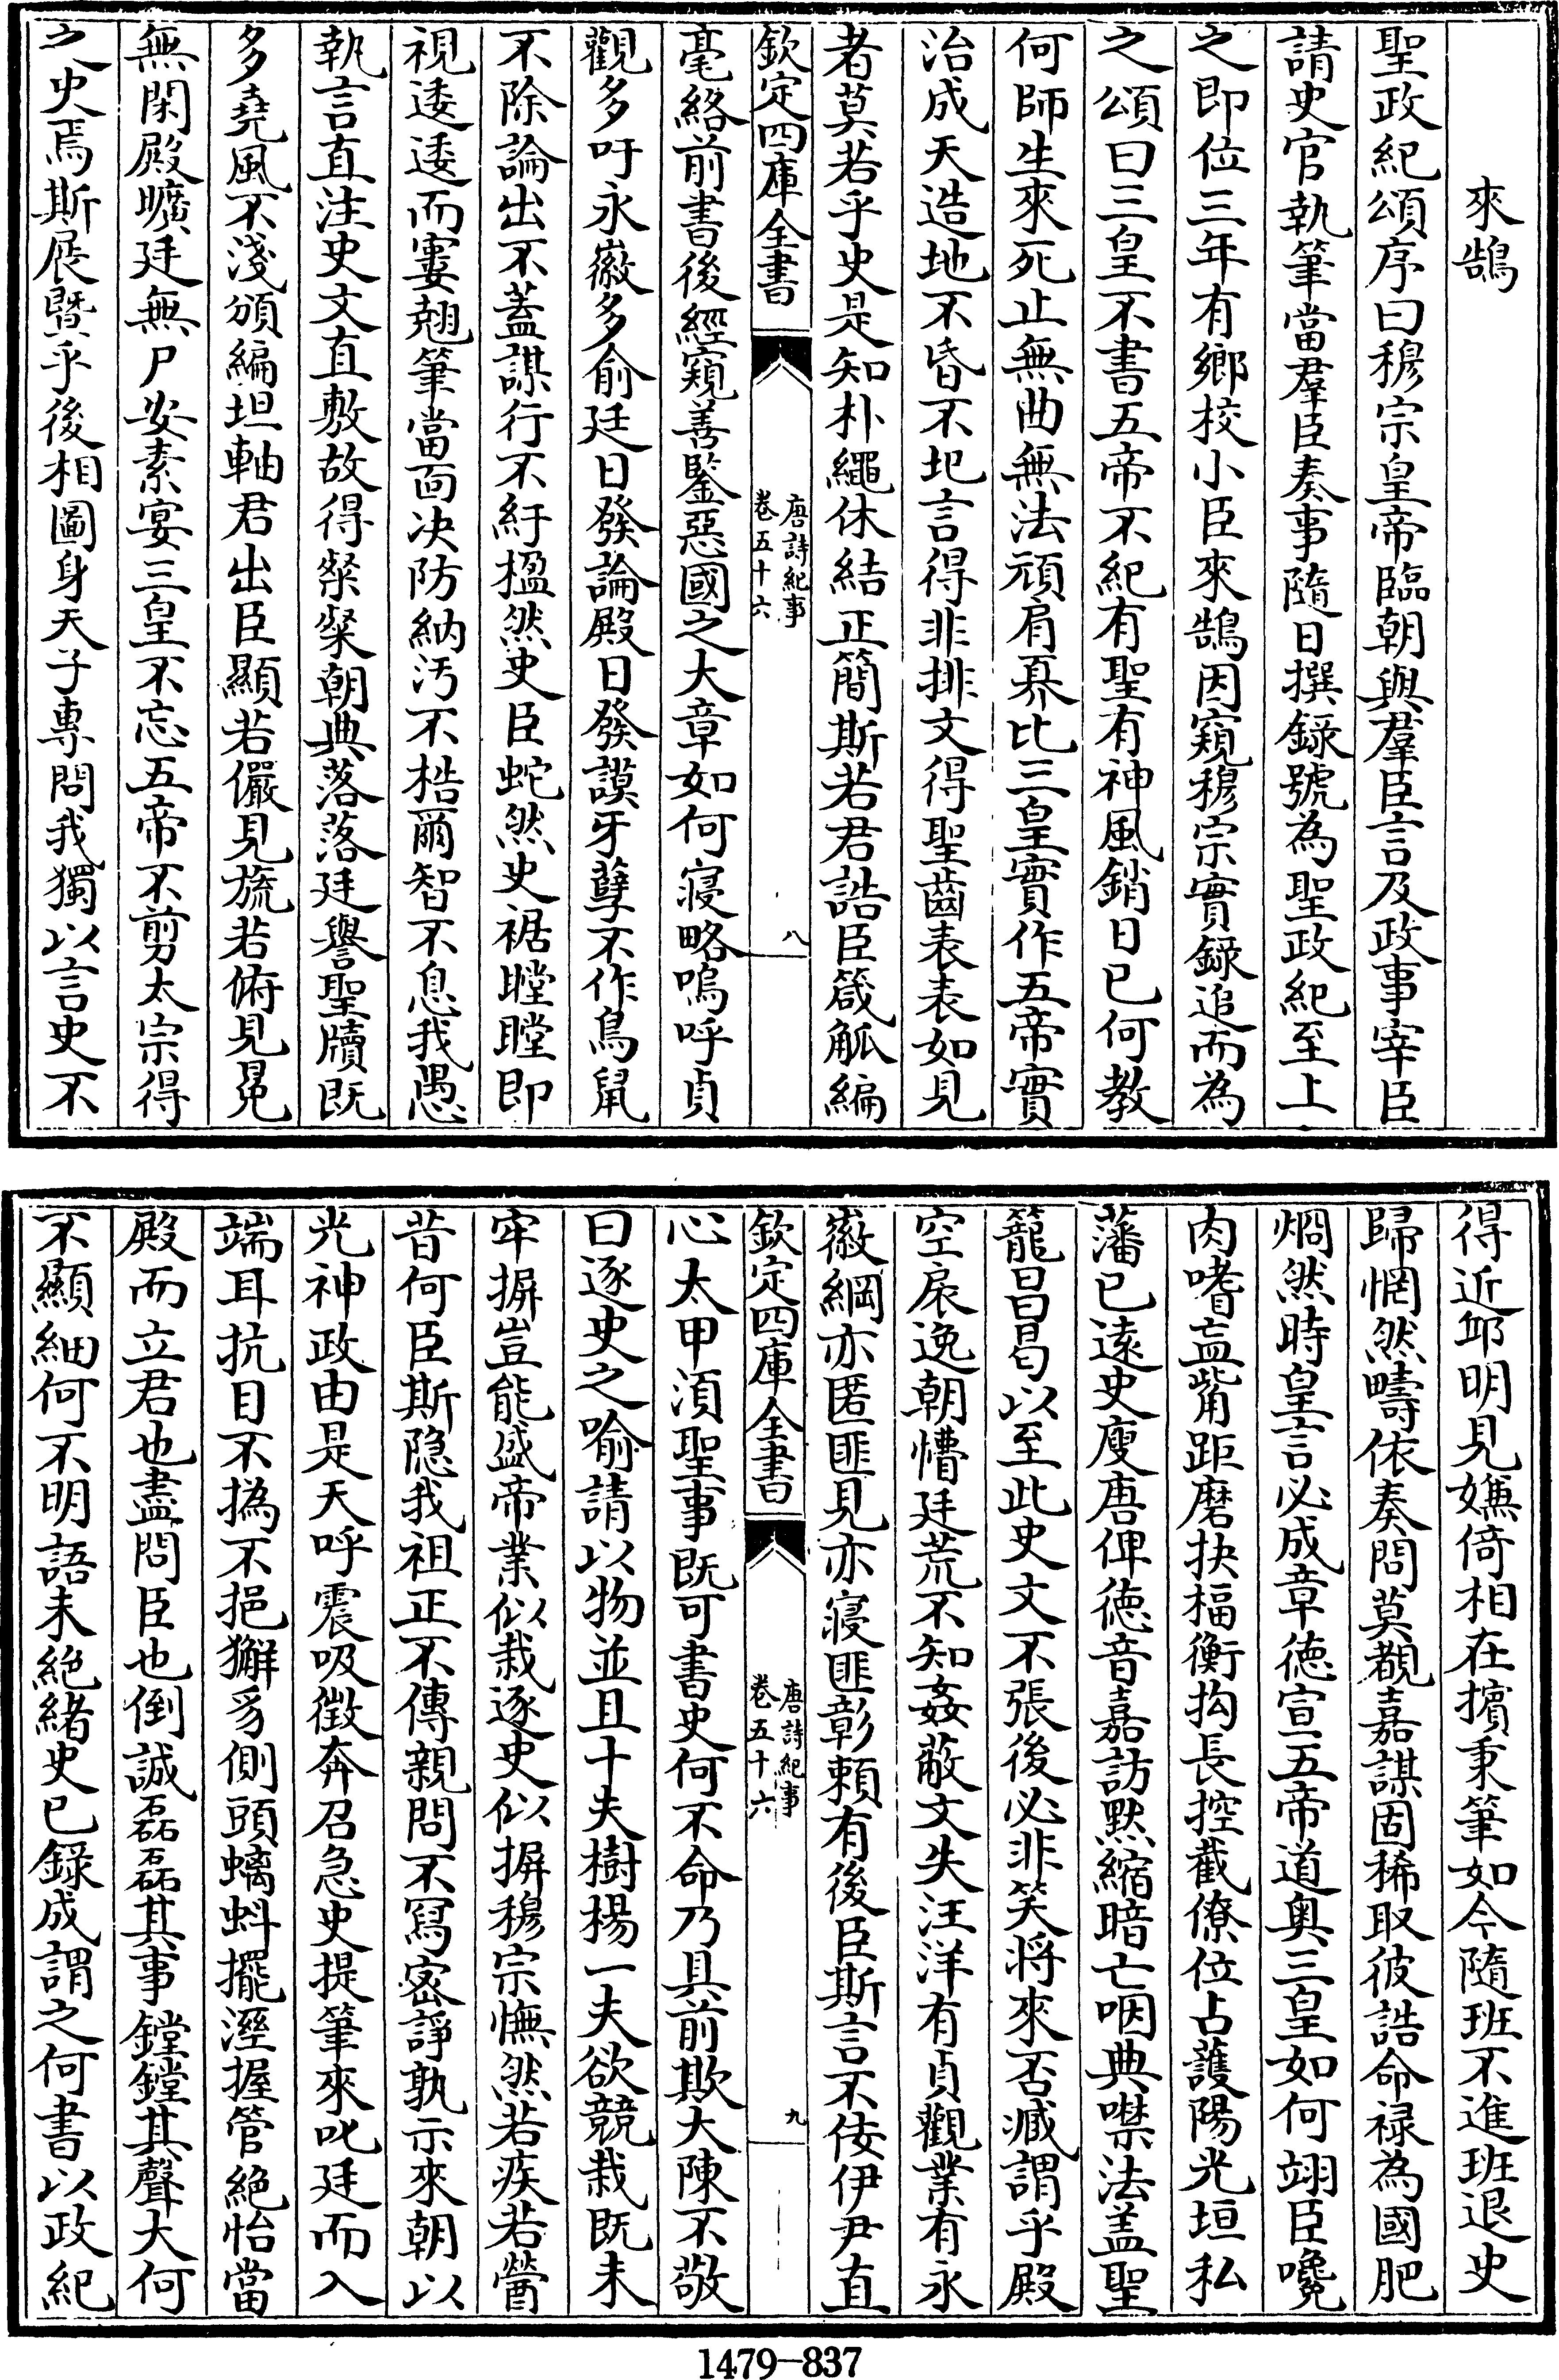 來鵠
聖政紀頌序曰穆宗皇帝臨朝與羣臣言及政事宰臣
請史官執筆當羣臣奏事隨日撰録號為聖政紀至上
之即位三年有鄉校小臣來鵠因窺穆宗實録追而為
之頌曰三皇不書五帝不紀有聖有神風銷日已何教
何師生來死止無曲無法頑肩奡比三皇實作五帝實
治成天造地不昏不圯言得非排文得聖齒表表如見
者莫若乎史是知朴繩休結正簡斯若君誥臣箴觚編
欽定四庫全書
唐詩紀事
卷五十六
八
毫絡前書後經窺善鑒惡國之大章如何寢略嗚呼貞
觀多吁永徽多俞廷日發論殿日發謨牙孽不作鳥鼠
不除論出不蓋謀行不紆楹然史臣蛇然史裾瞠瞠即
視逶逶而窶翹筆當面决防納汚不梏爾智不息我愚
執言直注史文直敷故得粲粲朝典落落廷譽聖牘既
多堯風不淺頒編坦軸君出臣顯若儼見旒若俯見冕
無閑殿曠廷無尸安素宴三皇不忘五帝不剪太宗得
之史焉斯展暨乎後相圖身天子專問我獨以言史不
得近邱明見嫌倚相在擯秉筆如今隨班不進班退史
歸惘然疇依奏問莫覩嘉謀固稀取彼誥命禄為國肥
烱然時皇言必成章徳宣五帝道奥三皇如何翊臣嚵
肉嗜盇觜距磨抉楅衡抅長控截僚位占護陽光垣私
藩已遠史廋唐俾徳音嘉訪黙縮暗亡咽典噤法盖聖
籠昌曷以至此史文不張後必非笑将來否臧謂乎殿
空扆逸朝慒廷荒不知姦蔽文失汪洋有貞觀業有永
徽綱亦匿匪見亦寢匪彰頼有後臣斯言不佞伊尹直
欽定四庫全書
唐詩紀事
卷五十六
九
心太甲須聖事既可書史何不命乃具前欺大陳不敬
曰逐史之喻請以物並且十夫樹楊一夫欲競栽既未
牢摒豈能盛帝業似栽逐史似摒穆宗憮然若疾若瞢
昔何臣斯隐我祖正不傳親問不冩密諍孰示來朝以
光神政由是天呼震吸徴奔召急史提筆來叱廷而入
端耳抗目不撝不挹獬豸側頭螭蚪擺溼握管絶怡當
殿而立君也盡問臣也倒誠磊磊其事鏜鏜其聲大何
不顯細何不明語未絶緒史已録成謂之何書以政紀
1479—837